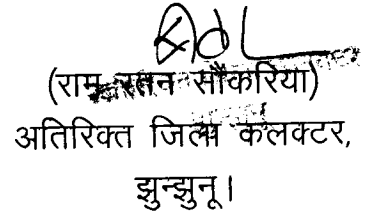 (राम रतन सौकरिया)
अतिरिक्त जिला कलक्टर,
झुन्झुनू।